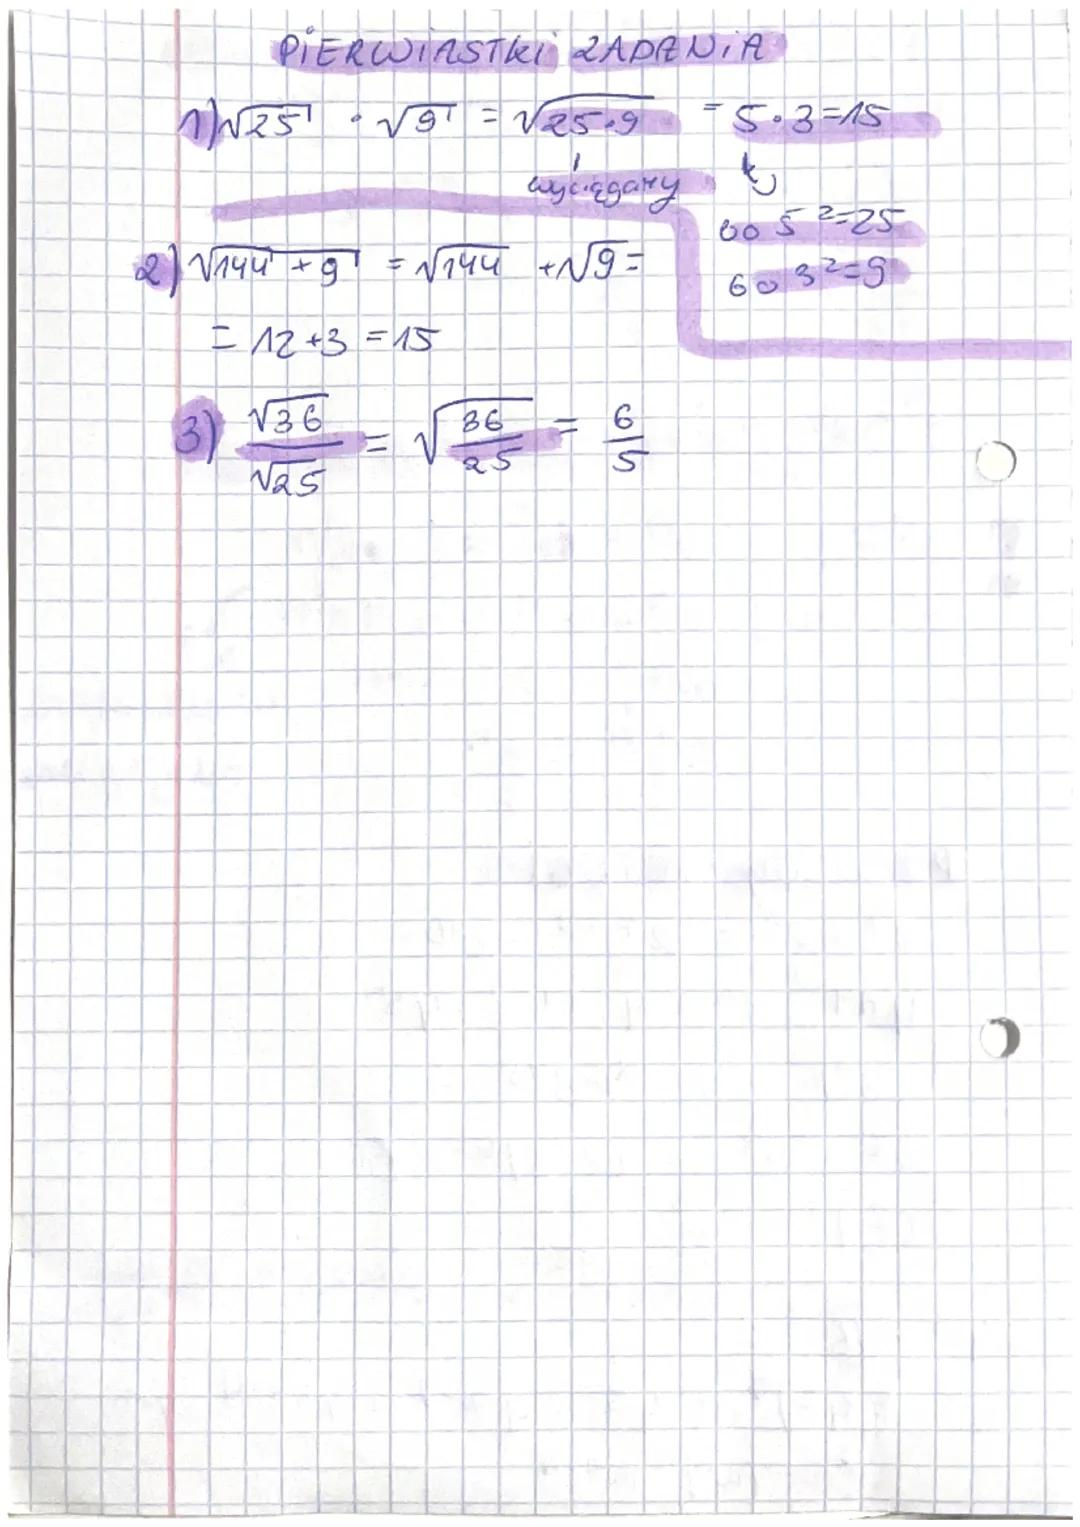 PIERWIASTKI ZADANIA
1) √25 · √9 = √25·9 = 5·3=15
wyciągamy
bo 5²=25
bo 3²=9
2) √144+9 = √144 + √9 =
= 12+3 = 15
3) √36/√25 = √36/25 = 6/5